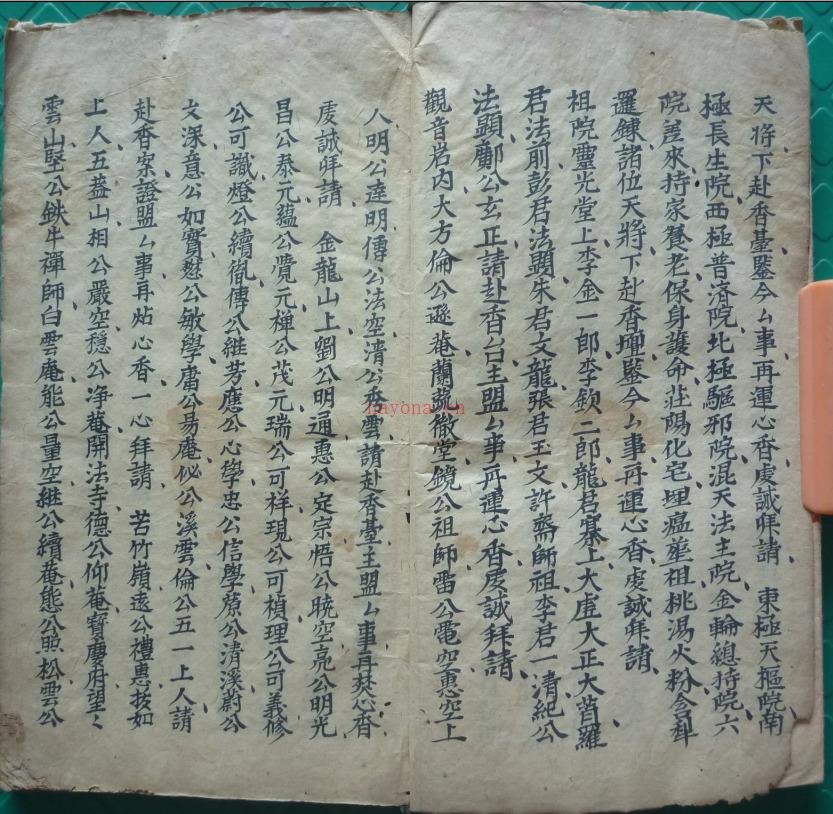 天將下赴香臺鑒今厶事再運心香虔誠拜請　東極天樞院南
極長生院西極普济院北極驅邪院混天法主院金輪總持院六
院差來持家養老保身護命莊陽化宅埋瘟塟祖桃湯火粉合
羅諸位天將下赴香坛鑒今厶事再運心香虔誠拜請
祖院靈光堂上李金一郎李欽二郎龍君寨上大虛大正大羅
君法前彭君法顕朱君文龍張君玉文許斋師祖李君一清紀公
法顯鄺公玄正請赴香台主盟厶事再運心香虔誠拜請
觀音岩內大方倫公遜菴蘭徹堂鏡公祖師雷公電空惠空上
人明公達明傳公法空清公秀雲請赴香臺主盟厶事再焚心香
虔誠拜請　金龍山上劉公明通惠公定宗悟公曉空亮公明光
昌公泰元蘊公覺元禅公茂元瑞公可祥現公可楨理公可義修
公可識燈公續傳公継芳應公心學忠公信學原公清溪蔚公
文深意公如實公敏學庸公易庵似公溪雲倫公五一上人請
赴香案證盟厶事再炷心香一心拜請　苦竹嶺遠公禮惠拔如
上人五盖山相公嚴空穩公净菴開法寺德公仰菴寳慶府望々
雲山堅公鉄牛禪師白雲庵能公量空継公續菴態公照松雲公
nayona.cn